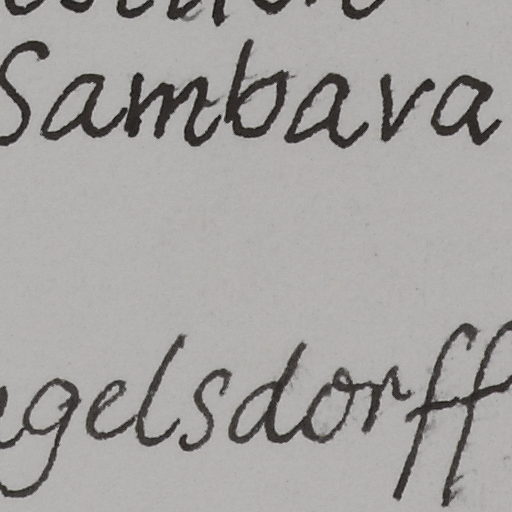 Sambava
gelsdorff